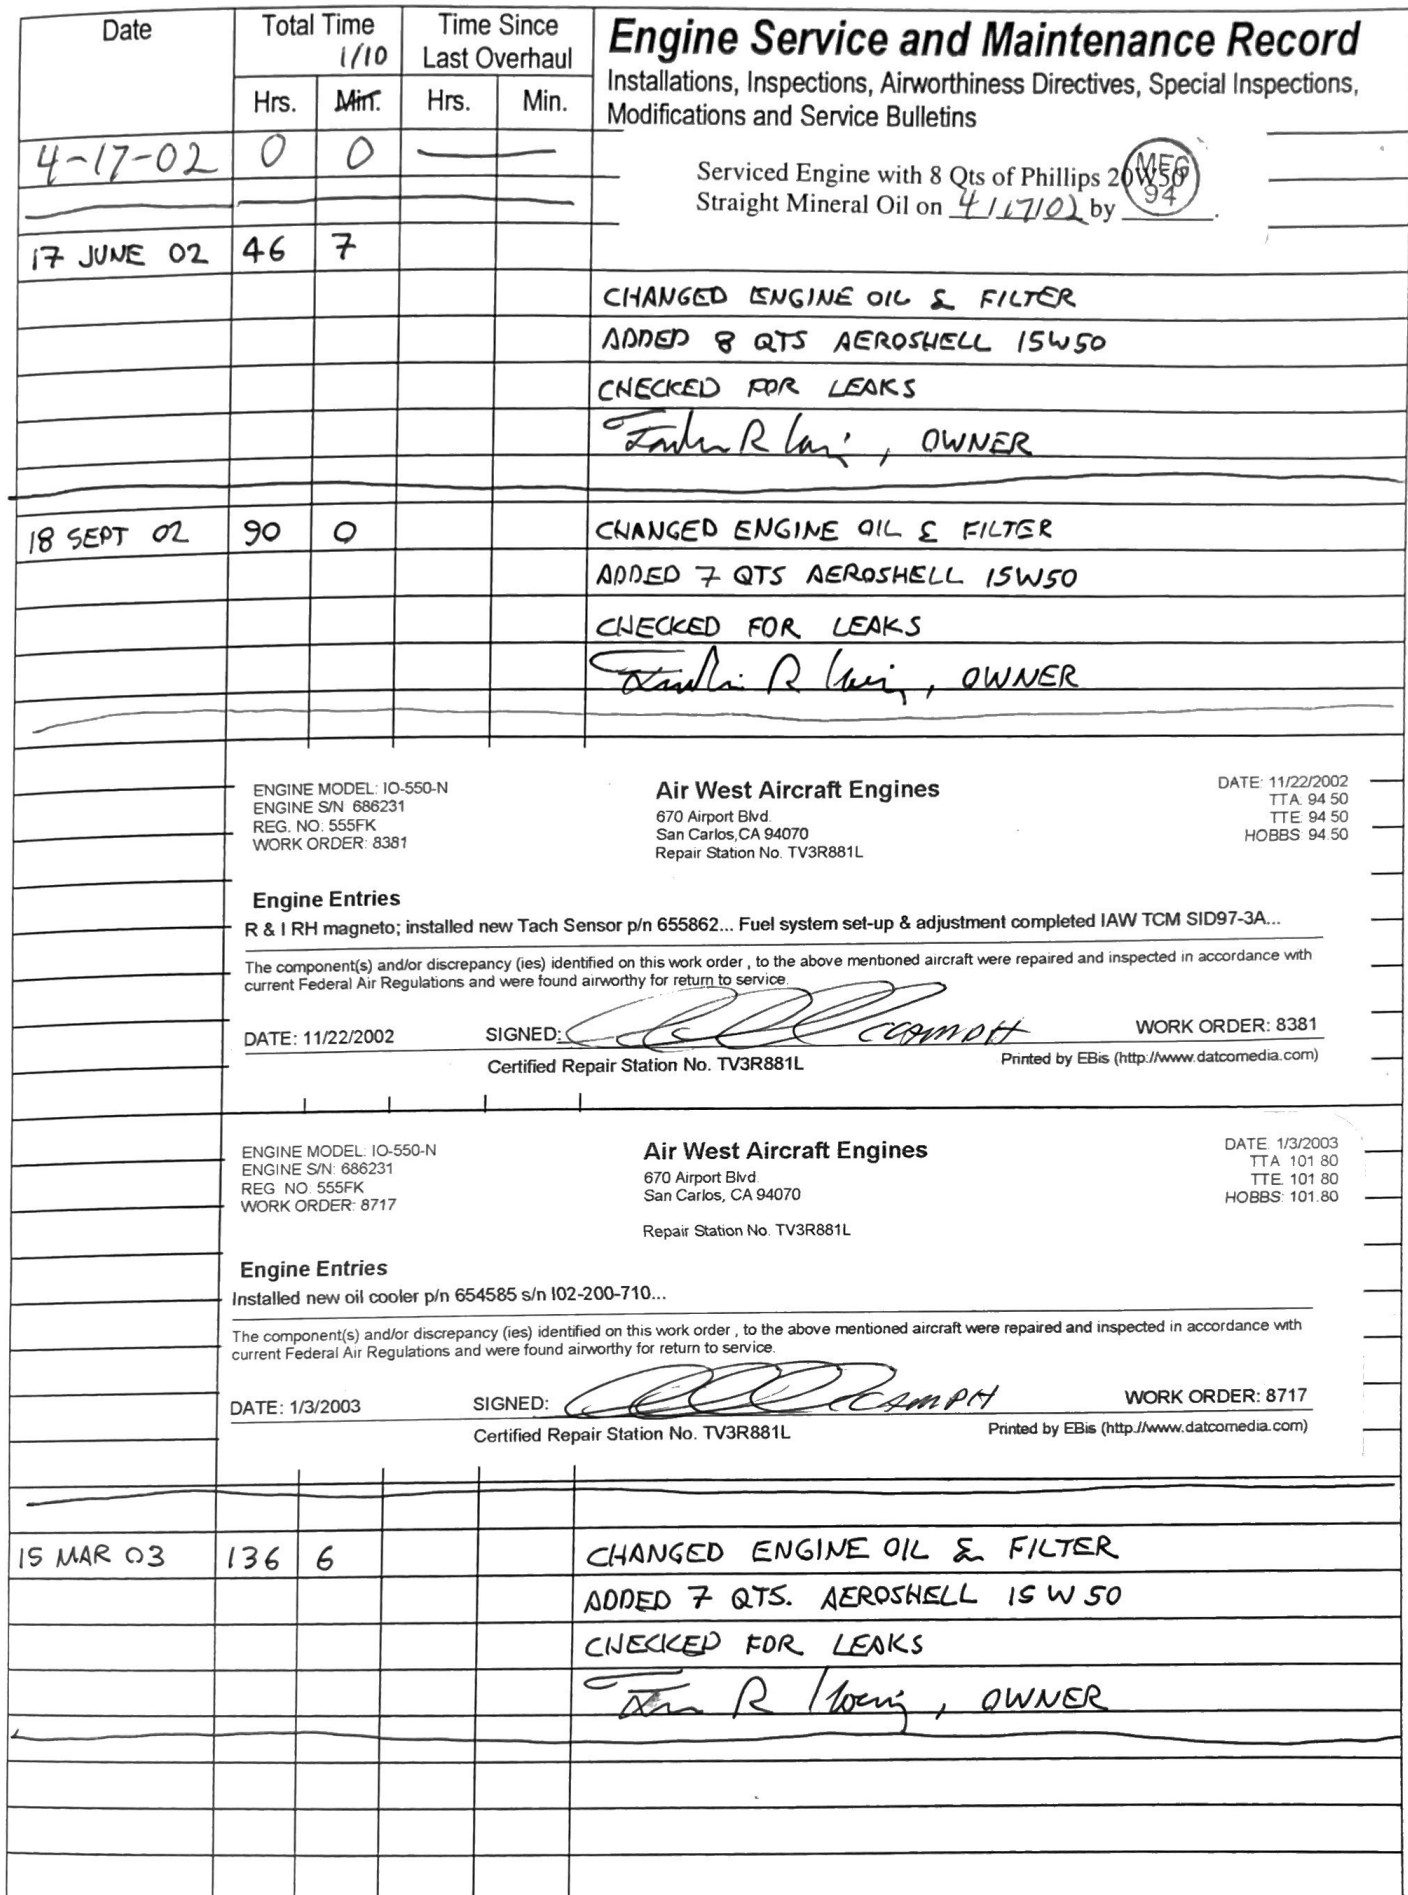 Date Total Time Time Since Engine Service and Maintenance Record
1/10 Last Overhaul
Installations, Inspections, Airworthiness Directives, Special Inspections,
Hrs. Min. Hrs. Min. Modifications and Service Bulletins
4-17-02 0 0
Serviced Engine with 8 Qts of Phillips 20W50 MEG
Straight Mineral Oil on 4/17/02 by 94 .
17 JUNE 02 46 7
CHANGED ENGINE OIL & FILTER
ADDED 8 QTS AEROSHELL 15W50
CHECKED FOR LEAKS
R , OWNER
18 SEPT 02 90 0 CHANGED ENGINE OIL & FILTER
ADDED 7 QTS AEROSHELL 15W50
CHECKED FOR LEAKS
R , OWNER
ENGINE MODEL: IO-550-N Air West Aircraft Engines DATE: 11/22/2002
ENGINE S/N 686231 670 Airport Blvd. TTA: 94 50
REG. NO: 555FK San Carlos,CA 94070 TTE: 94 50
WORK ORDER: 8381 Repair Station No. TV3R881L HOBBS: 94.50
Engine Entries
R & I RH magneto; installed new Tach Sensor p/n 655862... Fuel system set-up & adjustment completed IAW TCM SID97-3A...
The component(s) and/or discrepancy (ies) identified on this work order , to the above mentioned aircraft were repaired and inspected in accordance with
current Federal Air Regulations and were found airworthy for return to service.
DATE: 11/22/2002 SIGNED: WORK ORDER: 8381
Certified Repair Station No. TV3R881L Printed by EBis (http://www.datcomedia.com)
ENGINE MODEL: IO-550-N Air West Aircraft Engines DATE 1/3/2003
ENGINE S/N: 686231 670 Airport Blvd TTA 101 80
REG NO: 555FK San Carlos, CA 94070 TTE: 101 80
WORK ORDER: 8717 HOBBS: 101.80
Repair Station No. TV3R881L
Engine Entries
Installed new oil cooler p/n 654585 s/n I02-200-710...
The component(s) and/or discrepancy (ies) identified on this work order , to the above mentioned aircraft were repaired and inspected in accordance with
current Federal Air Regulations and were found airworthy for return to service.
DATE: 1/3/2003 SIGNED: WORK ORDER: 8717
Certified Repair Station No. TV3R881L Printed by EBis (http://www.datcomedia.com)
15 MAR 03 136 6 CHANGED ENGINE OIL & FILTER
ADDED 7 QTS. AEROSHELL 15 W 50
CHECKED FOR LEAKS
R , OWNER